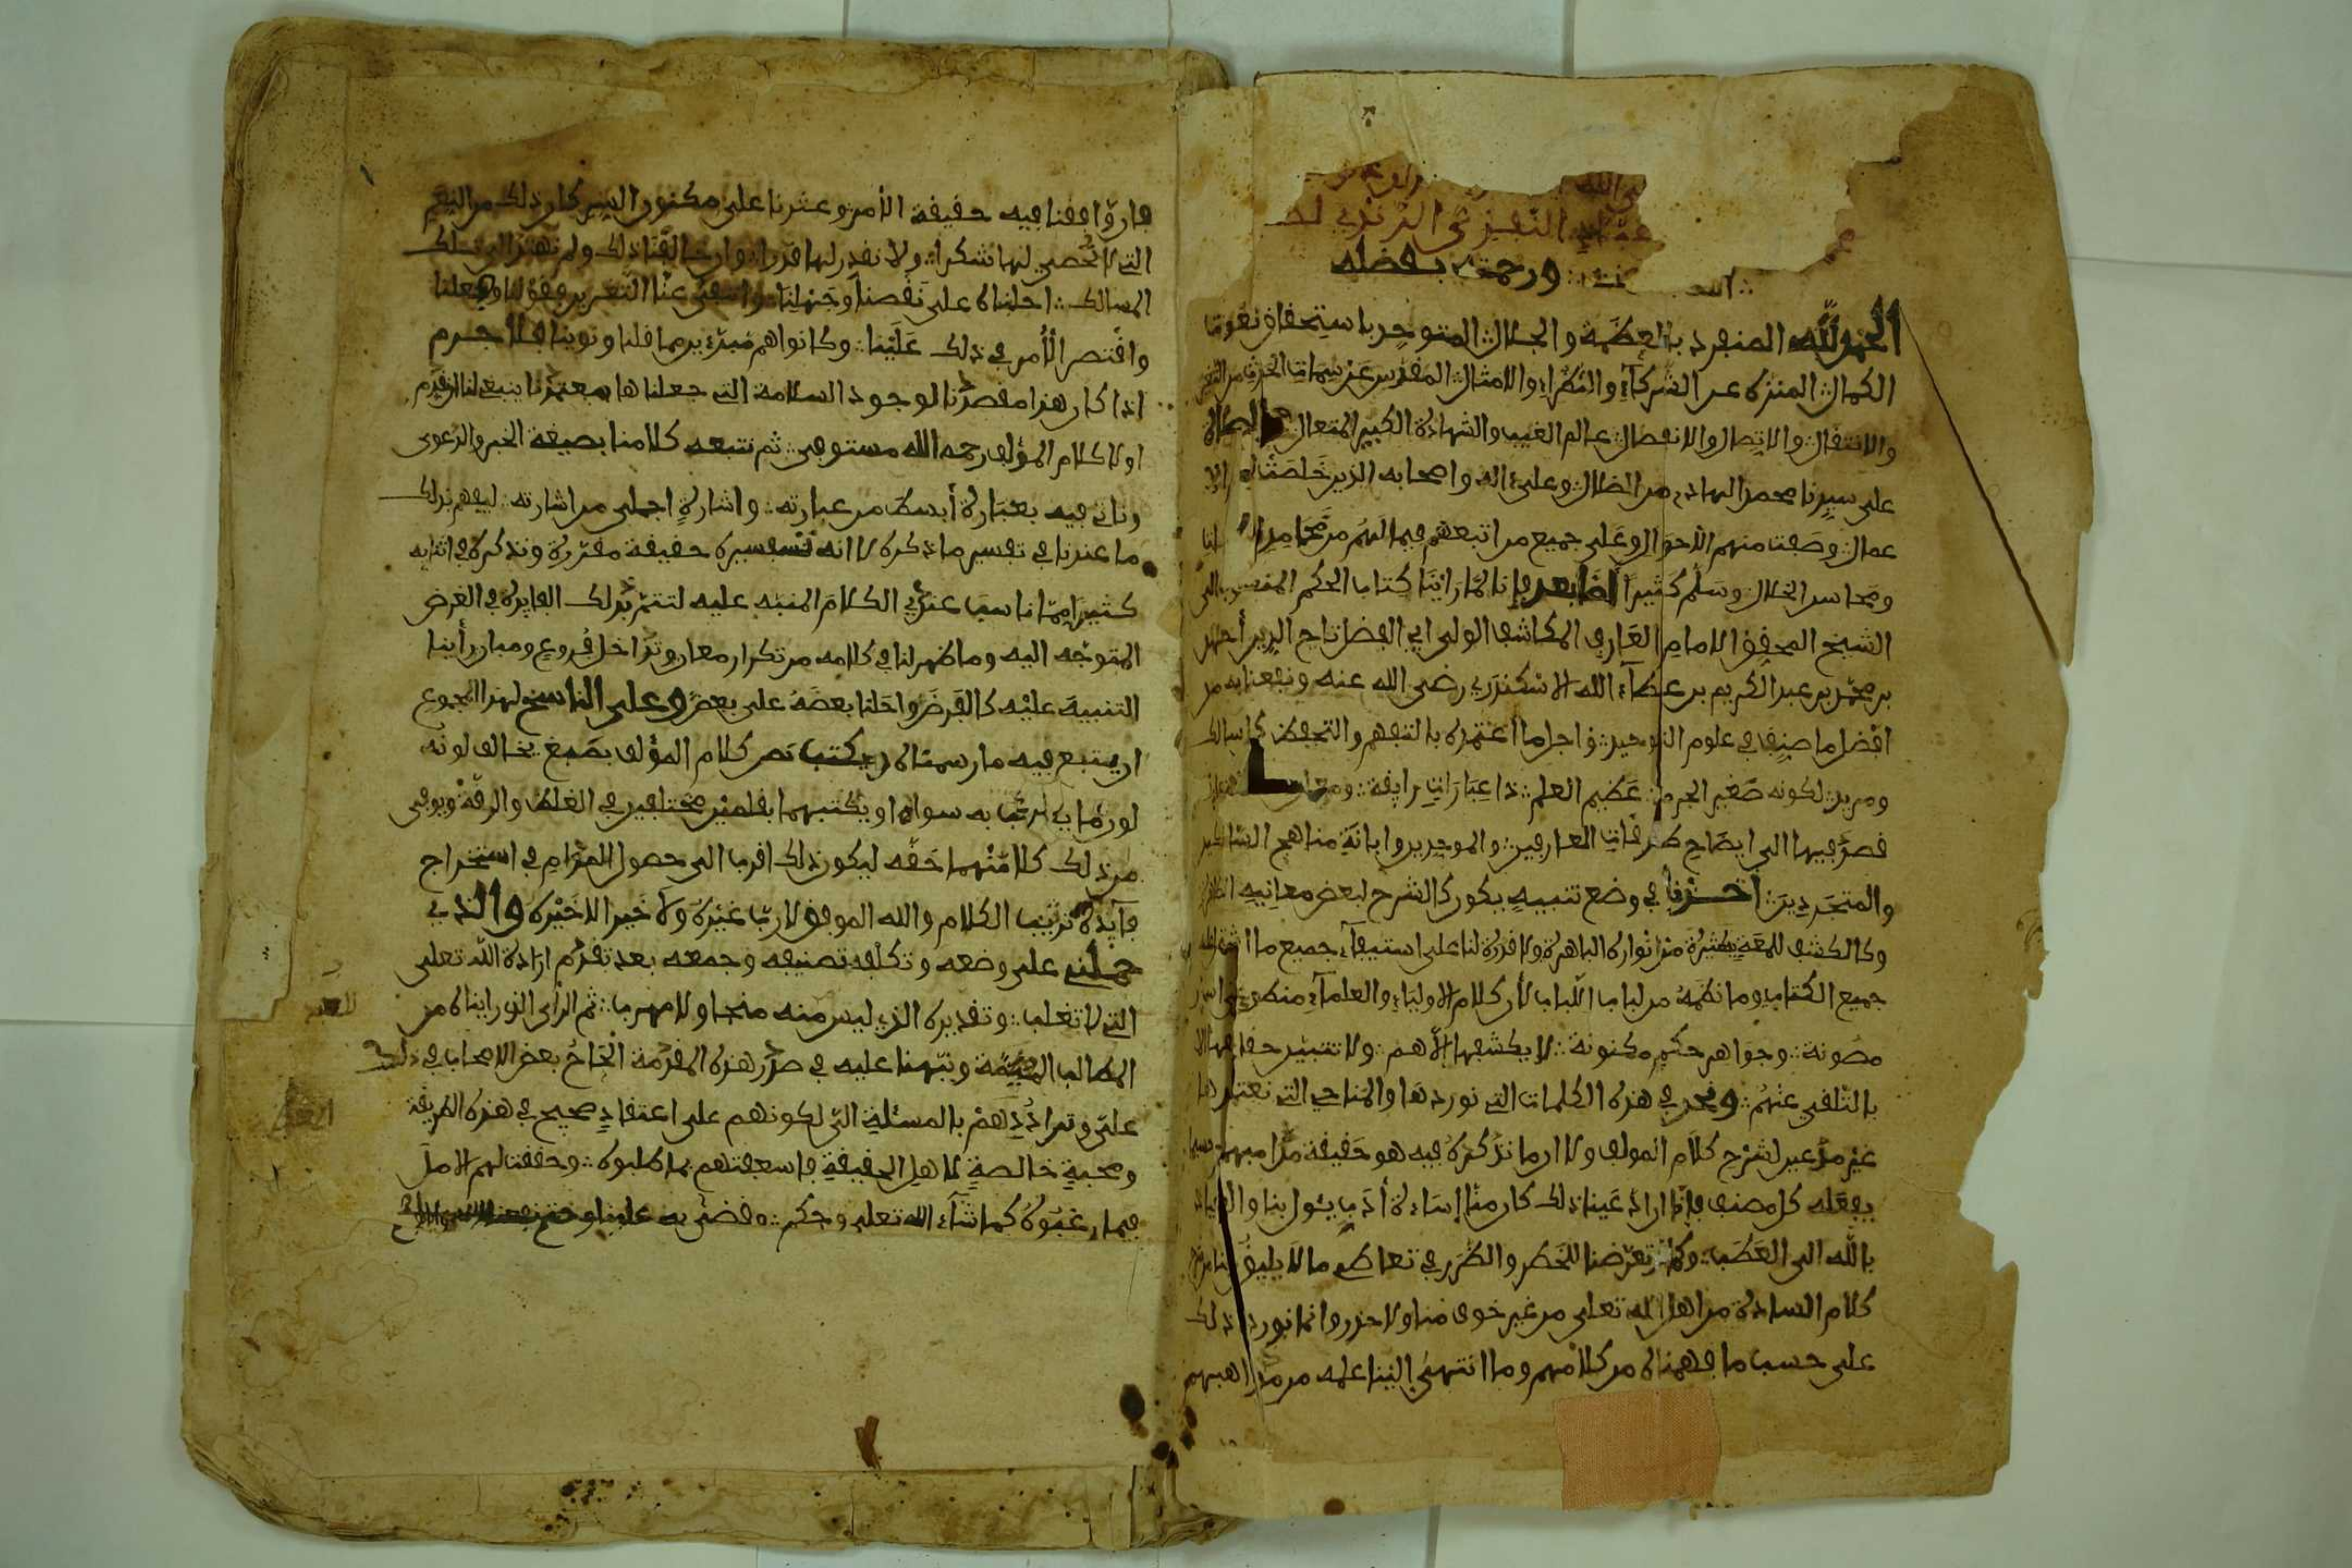 النفزي الرندي
ورحمته بفضله
الحمد لله المنفرد بالعظمة والجلال المتوحد باستحقاق نعوت
الكمال المنزه عن الشركاء والنظراء والامثال المقدس عن سمات الحدث من التغير
والانتقال والاتصال والانفصال عالم الغيب والشهادة الكبير المتعال والصلاة
على سيدنا محمد الهادي من الضلال وعلى اله واصحابه الذين خلصت لهم الا
عمال وصفت منهم الاحوال وعلى جميع من اتبعهم فيما لهم من محامد
ومحاسن الخلال وسلم كثيرا اما بعد فإنا لما راينا كتاب الحكم المنسوب الى
الشيخ المحقق الامام العارف المكاشف الولي ابي الفضل تاج الدين أحمد
بن محمد بن عبد الكريم بن عطاء الله الاسكندري رضي الله عنه ونفعنا به من
افضل ما صنف في علوم التوحيد واجل ما اعتمده بالتفهم والتحفظ كل سالك
ومريد لكونه صغير الجرم عظيم العلم ذا عبارات رايقة
قصد فيها الى ايضاح طرقات العارفين والموحدين وابانة مناهج السالكين
والمتجردين اخذنا في وضع تنبيه يكون كالشرح لبعض معانيه الظاهرة
وكالكشف للمعة يسيرة من انواره الباهرة ولا قدرة لنا على استيفاء جميع ما اشتمل عليه
جميع الكتاب وما تضمنه من لباب اللباب لأن كلام الاولياء والعلماء منطو على اسرار
مصونة وجواهر حكم مكنونة لا يكشفها الا هم ولا تتبين حقايقها الا
بالتلقي عنهم ونحن في هذه الكلمات التي نوردها والمناحي التي نعتمدها
غير مدعين لشرح كلام المولف ولا ان ما نذكره فيه هو حقيقة مذاهبهم حسبما
يفعله كل مصنف فإنا ان ادعينا ذلك كان منا إساءة أدب يئول بنا والعياذ
بالله الى العطب وكنا تعرضنا للخطر والضرر في تعاطي ما لا يليق بنا من شرح
كلام السادة من اهل الله تعلى من غير خوف منا ولا حذر وانما نورد ذلك
على حسب ما فهمناه من كلامهم وما انتهى الينا علمه من مذاهبهم
فان وافقنا فيه حقيقة الأمر وعثرنا على مكنون السر كان ذلك من النعم
التي لا نحصي لها شكرا ولا نقدر لها قدرا وان خالفنا ذلك ولم نهتد الى تلك
المسالك احلناه على نقصنا وجهلنا وانتفى عنا التغرير بقولنا وفعلنا
واقتصر الأمر في ذلك علينا وكانوا هم مبرئين مما قلنا ونوينا فلا جرم
اذا كان هذا مقصدنا لوجود السلامة التي جعلناها معتمدنا ينبغي لنا ان نقدم
اولا كلام المؤلف رحمه الله مستوفى ثم نتبعه كلامنا بصيغة الخبر والدعوى
وناتي فيه بعبارة أبسط من عبارته واشارة اجلى من اشارته ليفهم بذلك
ما عندنا في تفسير ما ذكره لا انه تفسيره حقيقة مقررة ونذكر في اثنايه
كثيرا مما ناسب عندي الكلام المنبه عليه لتتم بذلك الفايدة في الغرض
المتوجه اليه وما ظهر لنا في كلامه من تكرار معان وتداخل فروع ومبان رأينا
التنبيه عليه كالفرض واحلنا بعضه على بعض وعلى الناسخ لهذا المجموع
ان يتبع فيه ما رسمناه ويكتب نص كلام المؤلف بصبغ يخالف لونه
لون ما يكتب به سواه او يكتبهما بقلمين مختلفين في الغلظ والرقة ويوفي
من ذلك كلا منهما حقه ليكون ذلك اقرب الى حصول المرام في استخراج
فايدة ترتيب الكلام والله الموفق لا رب غيره ولا خير الا خيره والذي
حملني على وضعه وتكلف تصنيفه وجمعه بعد تقدم ارادة الله تعلى
التي لا تغلب وتقديره الذي ليس منه منجا ولا مهرب ثم الرأي الذي رايناه من
المطالب المهمة ونبهنا عليه في صدر هذه المقدمة الحاح بعض الاصحاب في ذلك
علي وتردادهم بالمسئلة الي لكونهم على اعتقاد صحيح في هذه الطريقة
ومحبة خالصة لاهل الحقيقة فاسعفتهم بما طلبوه وحققت لهم الامل
فيما رغبوه كما شاء الله تعلى وحكم وقضى به علينا وحتم